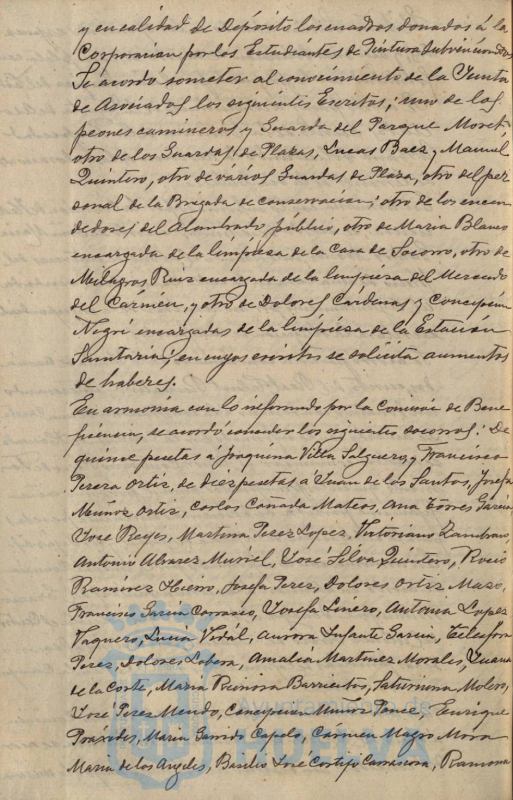 y en calidad de Depósito los cuadros donados á la
Corporación por los Estudiantes de Pintura subvencionados
Se acordó someter al conocimiento de la Junta
de Asociados los siguientes Escritos; uno de los
peones camineros y Guarda del Parque Moret
otro de los Guardas de Plazas, Lucas Baez y Manuel
Quintero, otro de varios Guardas de Plaza, otro del per
sonal de la Brigada de conservación; otro de los encen
dedores del Alumbrado público, otro de Maria Blanco
encargada de la limpiesa de la Casa de Socorro, otro de
Milagros Ruiz encargada de la limpiesa del Mercado
del Carmen, y otro de Dolores Cárdenas y Concepcion
Negri encargadas de la limpiesa de la Estación
Sanitaria; en cuyos escritos se solicita aumentos
de haberes.
En armonia con lo informado por la Comisión de Bene
ficencia, se acordó conceder los siguientes socorros: De
quince pesetas á Joaquina Villa Salguero, y Francisco
Perera Ortiz, de diez pesetas a Juan de los Santos, Josefa
Muñoz Ortiz, Carlos Cañada Mateos, Ana Torres Garcia
José Reyes, Martina Perez Lopez, Victoriano Zambrano,
Antonio Alvarez Muriel, José Silva Quintero, Rocio
Ramirez Hierro, Josefa Perez, Dolores Ortiz Mazo,
Francisco Garcia Carrasco, Josefa Linero, Antonia Lopez
Vaquero, Lucia Vidál, Aurora Infante Garcia, Telesfora
Perez, Dolores Lobera, Amalia Martinez Morales, Juana
de la Corte, Maria Reinosa Barrientos, Saturnina Molero,
José Perez Mendo, Concepcion Muñoz Ponce, Enrique
Praxedes, Maria Garrido Capelo, Cármen Magro Mora
Maria de los Angeles, Basilio José Cortijo Carrascosa, Ramona
Ayuntamiento de
HUELVA